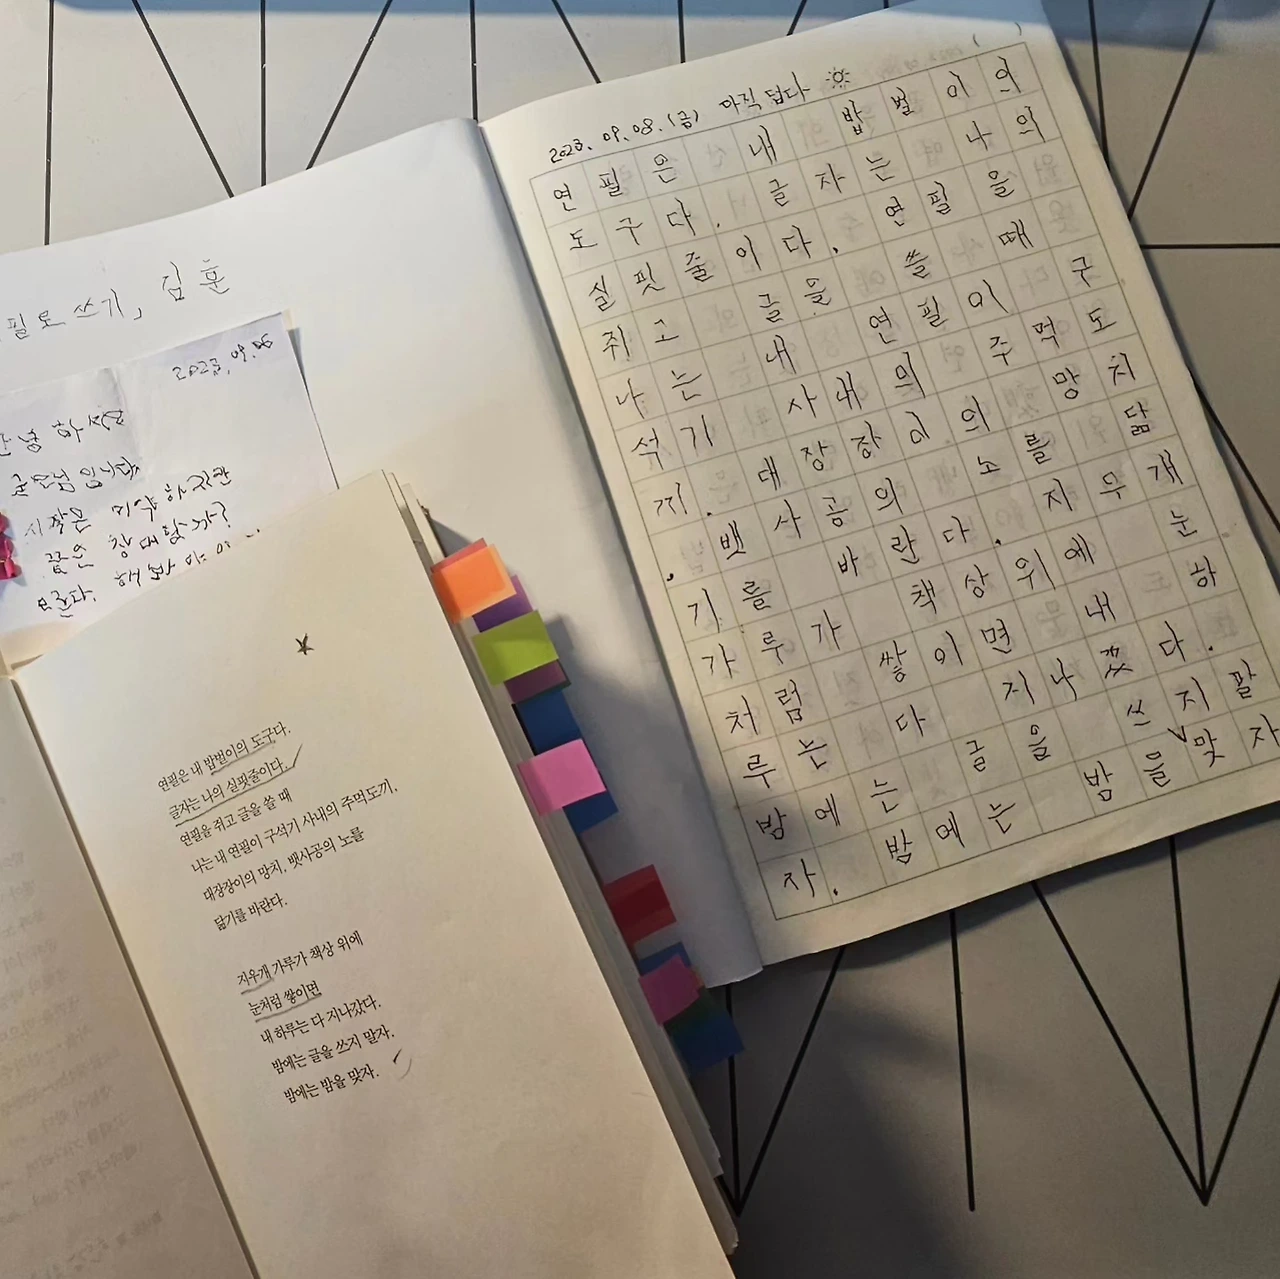 필로 쓰기」, 김훈
2023. 09. 06
하세요
글모님입니다
시작은 미약하지만
끝은 창대할까?
해봐야
모른다.
연필은 내 밥벌이의 도구다.
글자는 나의 실핏줄이다.
연필을 쥐고 글을 쓸 때
나는 내 연필이 구석기 사내의 주먹도끼,
대장장이의 망치, 뱃사공의 노를
닮기를 바란다.
지우개 가루가 책상 위에
눈처럼 쌓이면
내 하루는 다 지나갔다.
밤에는 글을 쓰지 말자.
밤에는 밤을 맞자.
2023. 09. 08. (금) 아직 덥다
연필은 내 밥벌이의
도구다. 글자는 나의
실핏줄이다. 연필을
쥐고 글을 쓸 때
나는 내 연필이 구
석기 사내의 주먹도
끼. 대장장이의 망치
, 뱃사공의 노를 닮
기를 바란다. 지우개
가루가 책상 위에 눈
처럼 쌓이면 내 하
루는 다 지나갔다.
밤에는 글을 쓰지 말
자. 밤에는 밤을 맞자